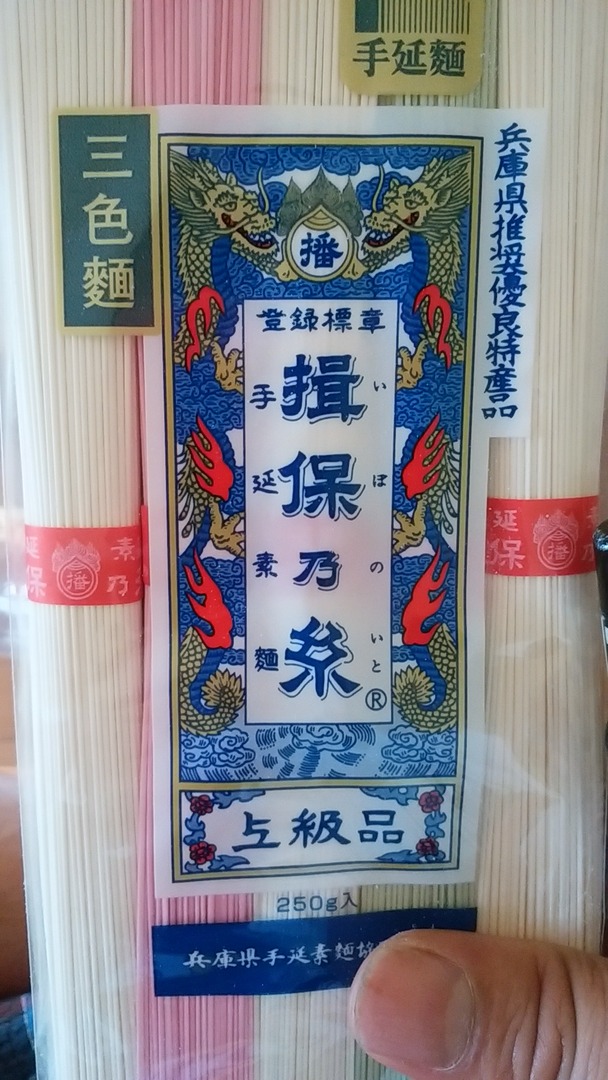 手延麺
三色麺
兵庫県推奨優良特産品
播
登録標章
手延素麺
揖保乃糸
いぼのいと
®
上級品
250g入
兵庫県手延素麺協
延保
播
素乃
延保
播
素